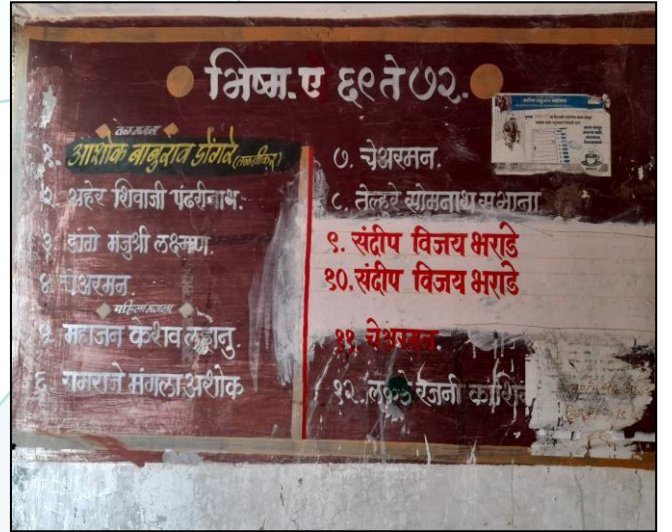 भिष्म.ए ६९ ते ७२.
तळ मजला
१. अशोक बाबुराव डोंगरे (तळणीकर)
२. अहेर शिवाजी पंढरीनाथ.
३. डांगे मंजुश्री लक्ष्मण.
४. चेअरमन.
पहिला मजला
५. महाजन केशव लहानु.
६ गमराजे मंगला अशोक
७. चेअरमन.
८. तेल्हुरे सोमनाथ सभाना
९. संदीप विजय भराडे
१०. संदीप विजय भराडे
११. चेअरमन.
१२. लकडे रजनी काशि